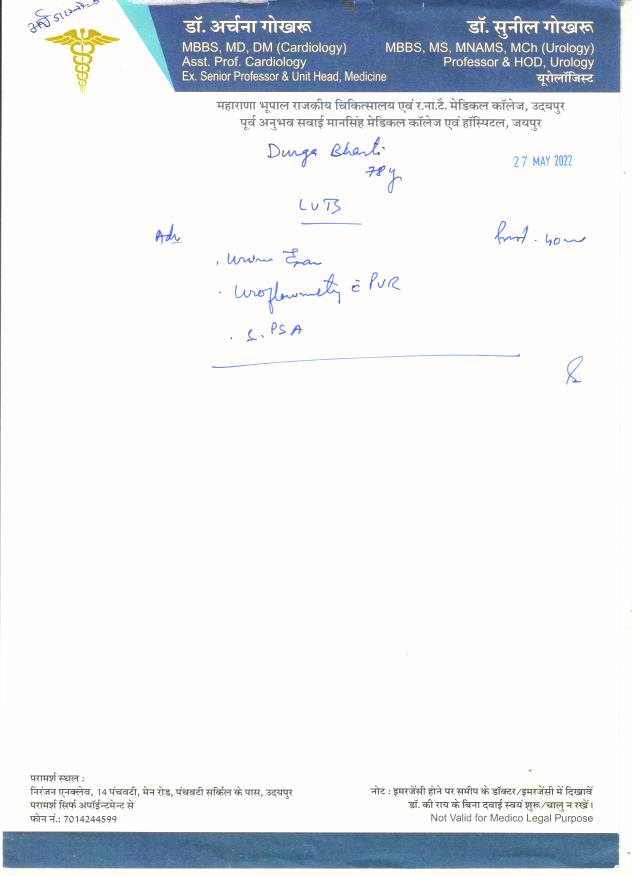 डॉ. अर्चना गोखरू
MBBS, MD, DM (Cardiology)
Asst. Prof. Cardiology
Ex. Senior Professor & Unit Head, Medicine
डॉ. सुनील गोखरू
MBBS, MS, MNAMS, MCh (Urology)
Professor & HOD, Urology
यूरोलॉजिस्ट
महाराणा भूपाल राजकीय चिकित्सालय एवं र.ना.टै. मेडिकल कॉलेज, उदयपुर
पूर्व अनुभव सवाई मानसिंह मेडिकल कॉलेज एवं हॉस्पिटल, जयपुर
Durga Bharti
78y
27 MAY 2022
LUTS
Adv
. Urine
. Uroflowmetry c̄ PVR
. S. PSA
परामर्श स्थल :
निरंजन एनक्लेव, 14 पंचवटी, मेन रोड, पंचवटी सर्किल के पास, उदयपुर
परामर्श सिर्फ अपॉईन्टमेन्ट से
फोन नं.: 7014244599
नोट : इमरजेंसी होने पर समीप के डॉक्टर/इमरजेंसी में दिखावें
डॉ. की राय के बिना दवाई स्वयं शुरू/चालु न रखें।
Not Valid for Medico Legal Purpose